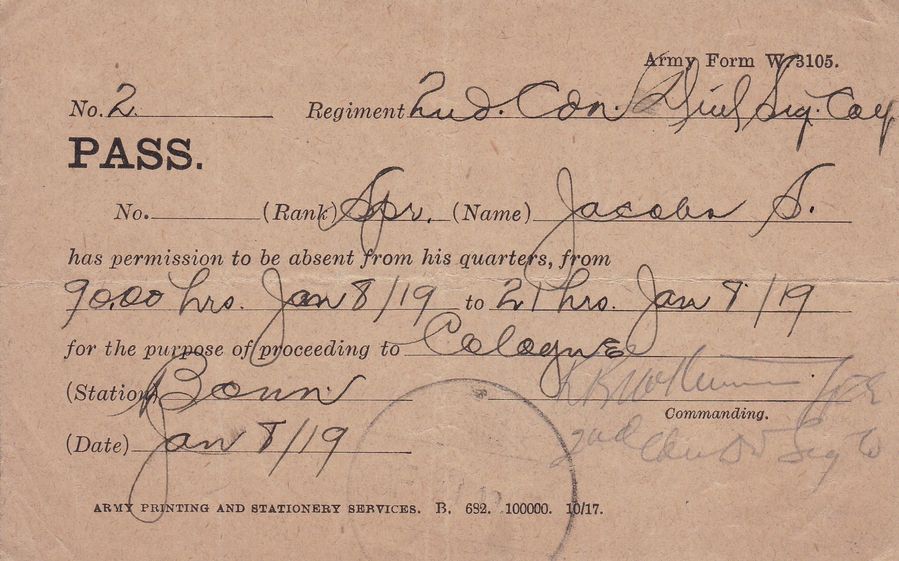 Army Form W.3105.
No. 2. Regiment 2nd. Can. Div'l Sig. Coy.
PASS.
No. (Rank) Spr. (Name) Jacobs S.
has permission to be absent from his quarters, from
9000 hrs. Jan 8/19 to 21 hrs. Jan 8/19
for the purpose of proceeding to Cologne
(Station) Bonn
Commanding.
(Date) Jan 8/19
2nd Can Div Sig Co
ARMY PRINTING AND STATIONERY SERVICES. B. 682. 100000. 10/17.